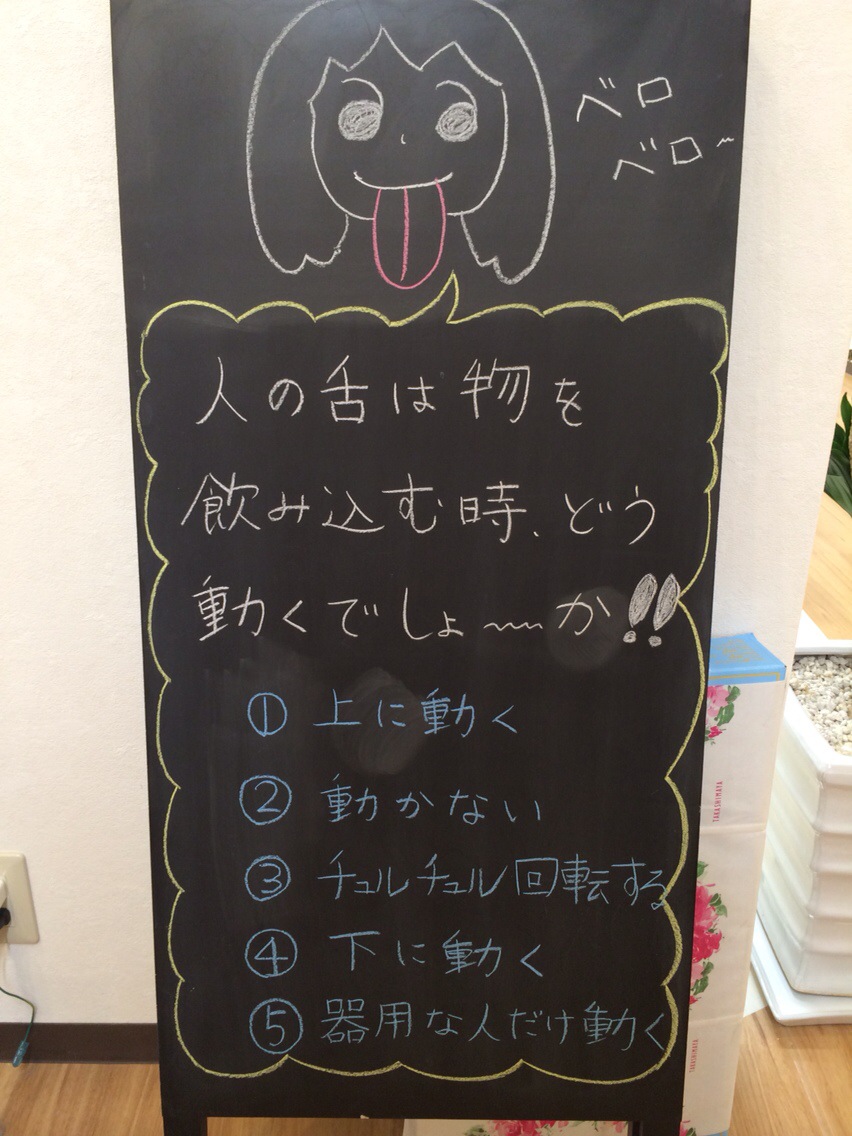 ベロ
ベロ~
人の舌は物を
飲み込む時、どう
動くでしょ~~か!!
① 上に動く
② 動かない
③ チュルチュル回転する
④ 下に動く
⑤ 器用な人だけ動く
TAKASHIMAYA
TAKASHIMAYA